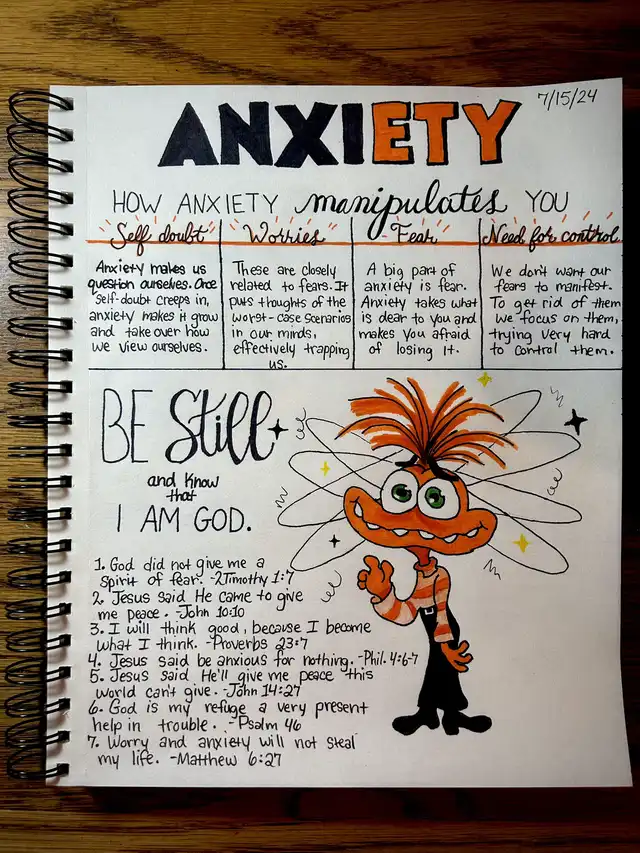 7/15/24
ANXIETY
HOW ANXIETY manipulates YOU
Self doubt
Anxiety makes us
question ourselves. Once
self-doubt creeps in,
anxiety makes it grow
and take over how
we view ourselves.
Worries
These are closely
related to fears. It
puts thoughts of the
worst-case scenarios
in our minds,
effectively trapping
us.
Fear
A big part of
anxiety is fear.
Anxiety takes what
is dear to you and
makes you afraid
of losing it.
Need for control
We don't want our
fears to manifest.
To get rid of them
we focus on them,
trying very hard
to control them.
BE Still
and know
that
I AM GOD.
1. God did not give me a
spirit of fear. -2 Timothy 1:7
2. Jesus said He came to give
me peace. -John 10:10
3. I will think good, because I become
what I think. -Proverbs 23:7
4. Jesus said be anxious for nothing. -Phil. 4:6-7
5. Jesus said He'll give me peace this
world can't give. -John 14:27
6. God is my refuge a very present
help in trouble. -Psalm 46
7. Worry and anxiety will not steal
my life. -Matthew 6:27